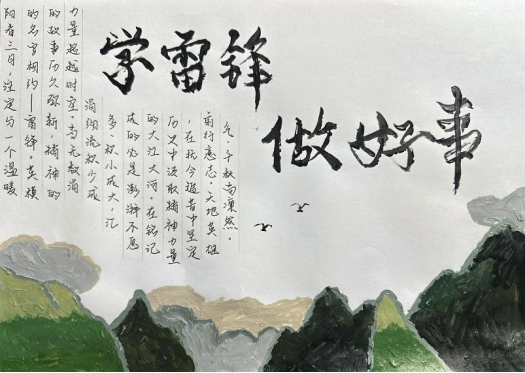 学雷锋
做好事
阳春三月，注定与一个温暖
的名字相约——雷锋。英模
的故事历久弥新，精神的
力量超越时空。当无数涓
涓细流积少成
多、积小成大，汇
成的必是澎湃不息
的大江大河。在铭记
历史中汲取精神力量
，在抚今追昔中坚定
前行意志。天地英雄
气，千秋尚凛然。